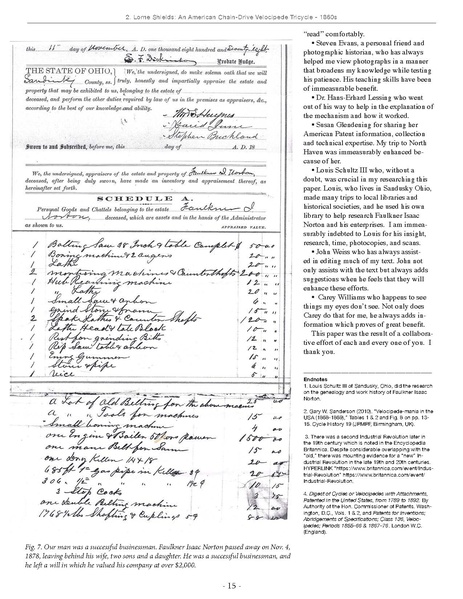 2. Lorne Shields: An American Chain-Drive Velocipede Tricycle - 1860s
this 11 day of November, A. D. one thousand eight hundred and Seventy eight
Probate Judge.
THE STATE OF OHIO,
Sandusky County, ss.
We, the undersigned, do make solemn oath that we will
truly, honestly and impartially appraise the estate and
property that may be exhibited to us, belonging to the estate of
deceased, and perform the other duties required by law of us in the premises as appraisers, &c.,
according to the best of our knowledge and ability.
Stephen Buckland
Sworn to and Subscribed, before me, this day of A. D. 18
We, the undersigned, appraisers of the estate and property of Faulkner I. Norton,
deceased, after being duly sworn, have made an inventory and appraisement thereof, as
hereinafter set forth.
SCHEDULE A.
Personal Goods and Chattels belonging to the estate Faulkner I
Norton, deceased, which are assets and in the hands of the Administrator
as shown to us. APPRAISED VALUE.
1 Boring machine & 2 augers
1 Lathe
1 Hub machine 12
1 " Lathe 20
1 Small Saw & arbon
1 Grind Stone & frame
1 Lathe Head & tale Block
1 Rip Saw table & arbon 12
1 Stove & pipe 4
1 Vice
A Lot of Old Belting for the above machine
A " " Tools for machines 15
Small boring machine
one Engine & Boiler power 1500
3 Stop Cocks
Fig. 7. Our man was a successful businessman. Faulkner Isaac Norton passed away on Nov. 4,
1878, leaving behind his wife, two sons and a daughter. He was a successful businessman, and
he left a will in which he valued his company at over $2,000.
"read" comfortably.
• Steven Evans, a personal friend and
photographic historian, who has always
helped me view photographs in a manner
that broadens my knowledge while testing
his patience. His teaching skills have been
of immeasurable benefit.
• Dr. Hans-Erhard Lessing who went
out of his way to help in the explanation of
the mechanism and how it worked.
• Susan Glendening for sharing her
American Patent information, collection
and technical expertise. My trip to North
Haven was immeasurably enhanced be-
cause of her.
• Louis Schultz III who, without a
doubt, was crucial in my researching this
paper. Louis, who lives in Sandusky Ohio,
made many trips to local libraries and
historical societies, and he used his own
library to help research Faulkner Isaac
Norton and his enterprises. I am immea-
surably indebted to Louis for his insight,
research, time, photocopies, and scans.
• John Weiss who has always assist-
ed in editing much of my text. John not
only assists with the text but always adds
suggestions when he feels that they will
enhance these efforts.
• Carey Williams who happens to see
things my eyes don't see. Not only does
Carey do that for me, he always adds in-
formation which proves of great benefit.
This paper was the result of a collabora-
tive effort of each and every one of you. I
thank you.
Endnotes
1. Louis Schultz III of Sandusky, Ohio, did the research
on the genealogy and work history of Faulkner Isaac
Norton.
2. Gary W. Sanderson (2010). "Velocipede-mania in the
USA (1868-1869)," Tables 1 & 2 and Fig. 9 on pp. 13-
15. Cycle History 19 (JPMPF, Birmingham, UK).
3. There was a second Industrial Revolution later in
the 19th century which is noted in the Encyclopedia
Britannica. Despite considerable overlapping with the
"old," there was mounting evidence for a "new" In-
dustrial Revolution in the late 19th and 20th centuries.
HYPERLINK "https://www.britannica.com/event/Indus-
trial-Revolution" https://www.britannica.com/event/
Industrial-Revolution.
4. Digest of Cycles or Velocipedes with Attachments,
Patented in the United States, from 1789 to 1892. By
Authority of the Hon. Commissioner of Patents. Wash-
ington, D.C., Vols. 1 & 2, and Patents for Inventions;
Abridgements of Specifications; Class 136, Veloc-
pedes; Periods 1855-66 & 1867-76. London W.C.
(England).
- 15 -